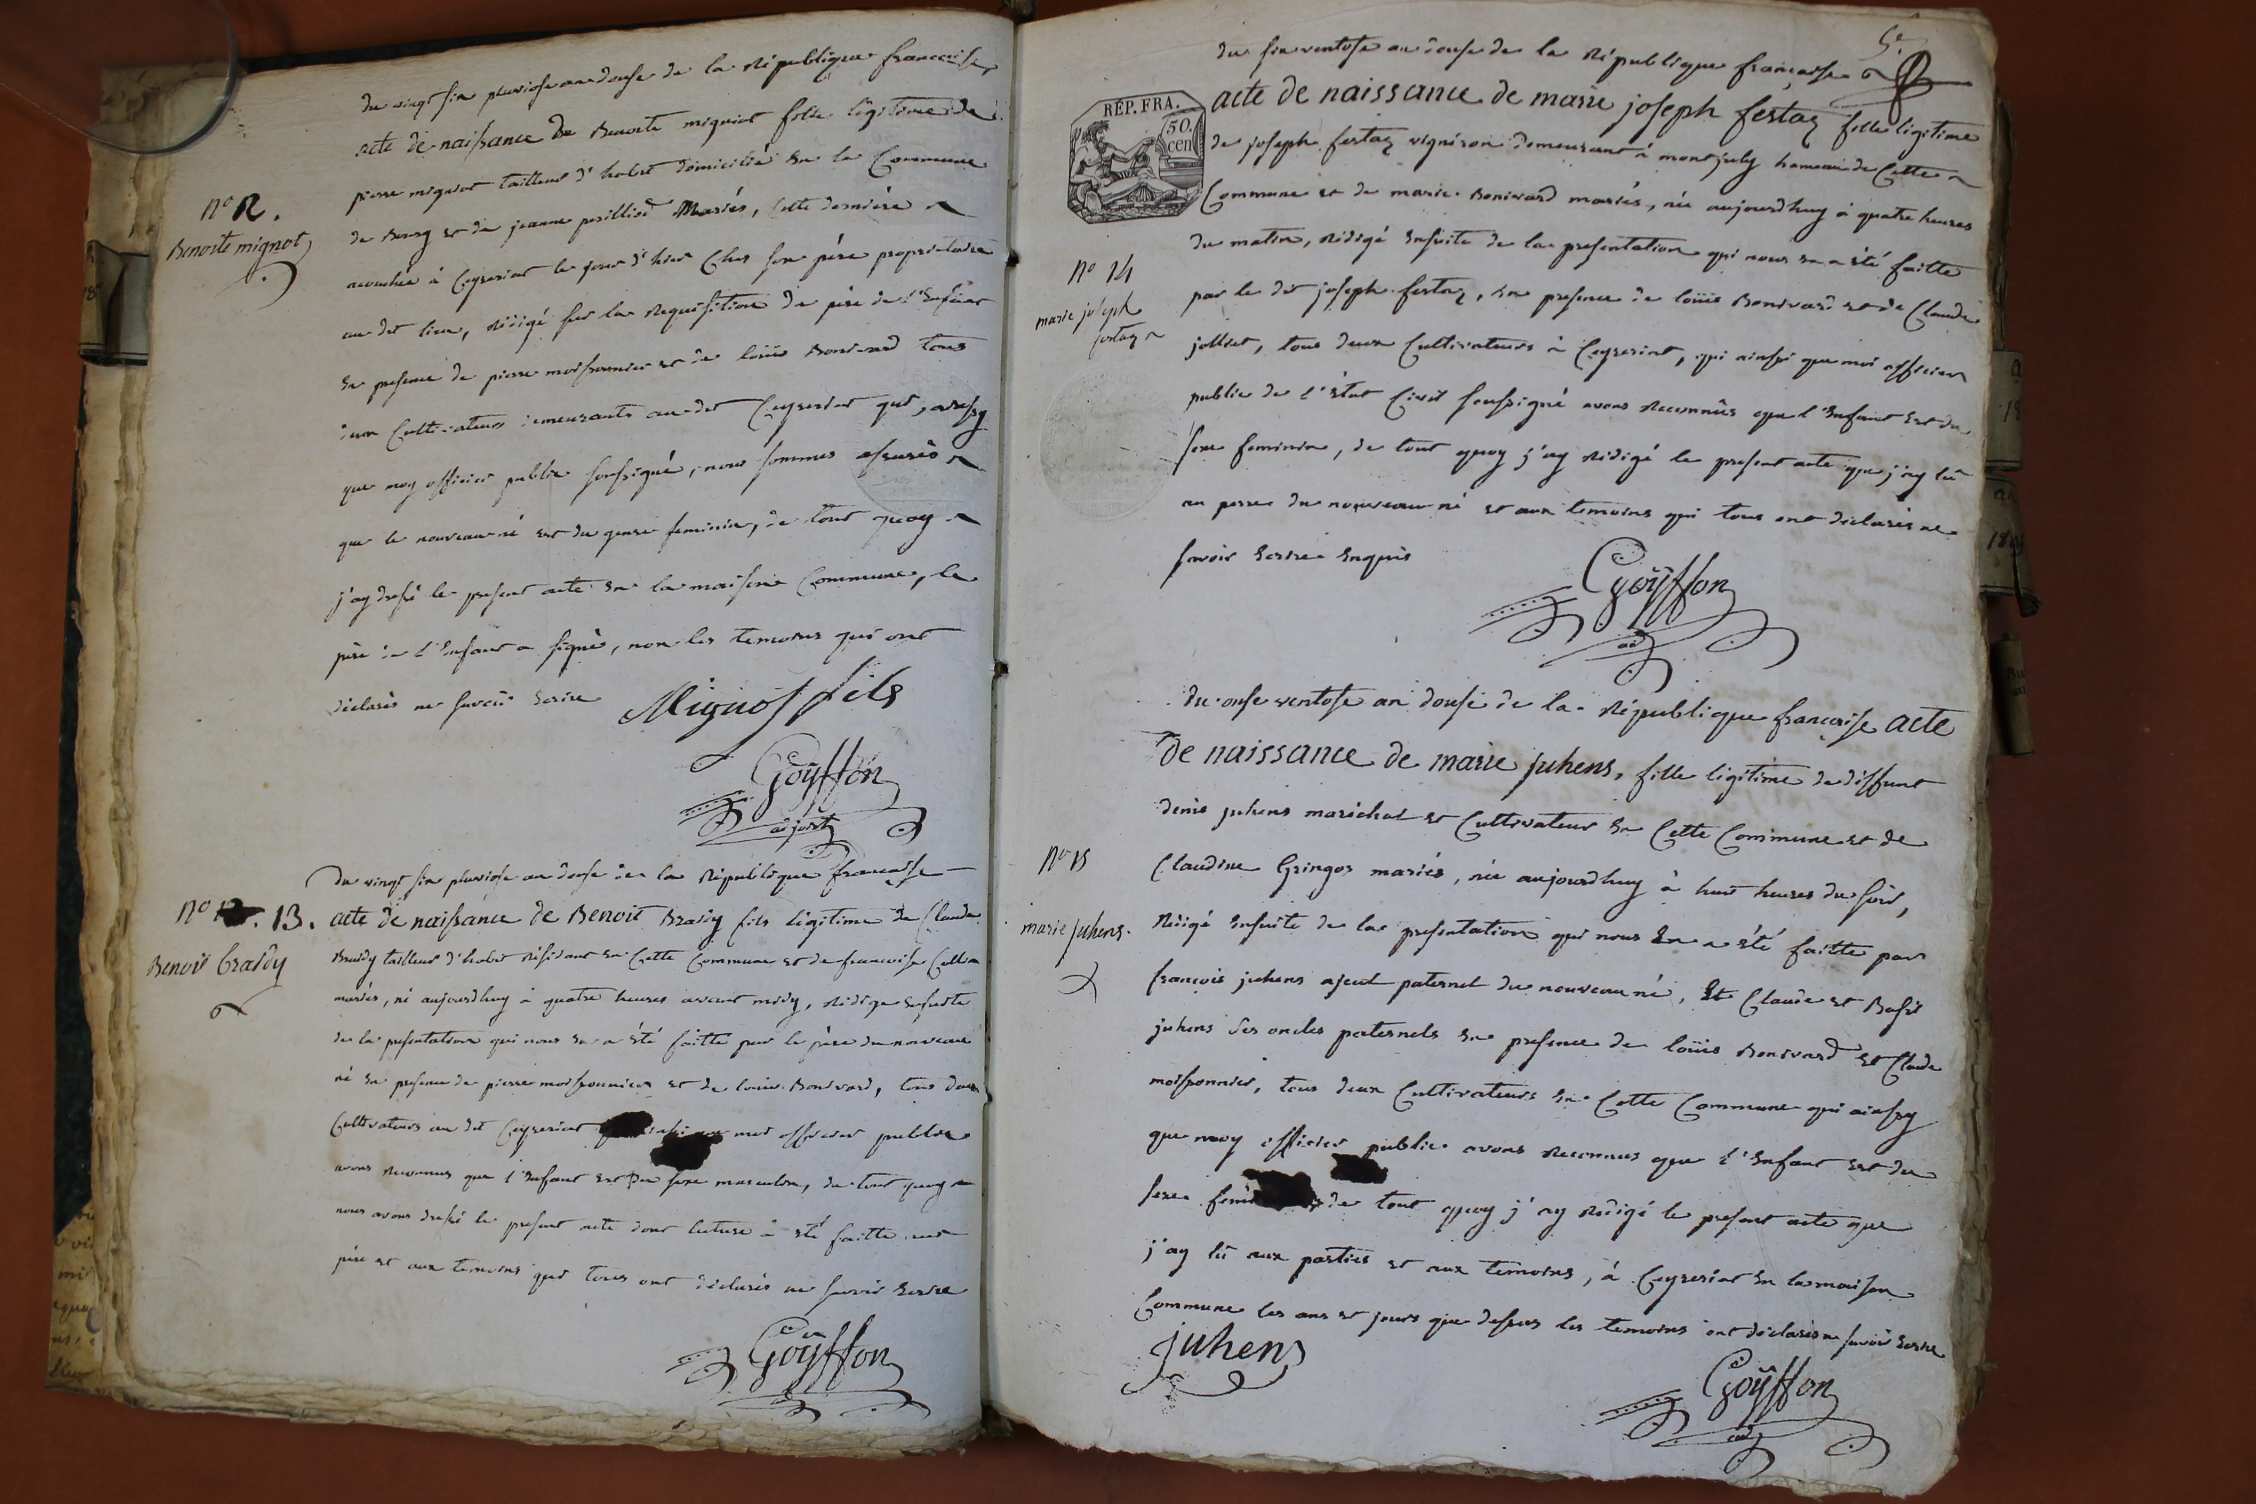 du vingt six pluviose an douse de la République francaise
acte de naissance de Benoite mignot fille légitime de
pierre mignot tailleur d'habit domicilié en la Commune
de Bourg et de jeanne perillied Mariés, cette derniére
acouchée à Ceyseriat le jour d'hier Chez son pére proprietaire
au dit lieu, rédigé sur la Requisition du pére de l'enfant
en presence de pierre moissonnier et de loüis Bonivard tous
deux Cultivateurs demeurants au dit Ceyseriat qui, ainssy
que moy officier public soussigné, nous sommes assurés
que le nouveau né est du genre feminin, de tout quoy
j'ay dressé le present acte en la maison Commune, le
pére de l'enfant a signé, non les temoins qui ont
déclarés ne savoir écrire Mignot fils
Goÿffon
adjoint
n° 12.
Benoite mignot
du vingt six pluviose an douse de la République francaise
n° 13.
Benoit braidy
acte de naissance de Benoit Braidy fils légitime de Claude
Braidy tailleur d'habit résidant en Cette Commune et de francoise
mariés, né aujourdhuy à quatre heures avant midy, rédigé ensuite
de la presentation qui nous en a été faitte par le pére du nouveau
né en presence de pierre moissonnier et de louis Bonivard, tous deux
Cultivateurs au dit Ceyseriat moi officier public
avons reconnus que l'enfant est du sexe masculin, de tout quoy
nous avons dressé le present acte dont lecture a été faitte au
pére et aux temoins qui tous ont déclarés ne savoir écrire
Goÿffon
5e
du six ventose an douse de la République française
RÉP. FRA.
50.
cen
acte de naissance de marie joseph festaz fille légitime
de joseph festaz vigniron demeurant à montjuly hameau de Cette
Commune et de marie Bonivard mariés, née aujourdhuy à quatre heures
du matin, rédigé ensuite de la presentation qui nous en a été faitte
n° 14
marie joseph
festaz
par le dit joseph festaz, en presence de loüis Bonivard et de Claude
jolliet, tous deux Cultivateurs à Ceyseriat, qui ainssi que moi officier
public de l'état Civil soussigné avons reconnûs que l'enfant est du
sexe feminin, de tout quoy j'ay rédigé le present acte que j'ay lû
au perre du nouveau né et aux temoins qui tous ont déclarés ne
savoir écrire enquis
Goÿffon
ad
du onse ventose an douse de la République française acte
de naissance de marie juhens, fille légitime de déffunt
denis juhens maréchal et Cultivateur en Cette Commune et de
n° 15
marie juhens.
Claudine Gringoz mariés, née aujourdhuy à huit heures du soir,
Rédigé ensuite de la presentation qui nous en a été faitte par
françois juhens ajeul paternel du nouveau né, et Claude et Basil
juhens ses oncles paternels en presence de loüis Bonivard et Claude
moissonnier, tous deux Cultivateurs en Cette Commune qui ainssy
que moy officier public avons reconnus que l'enfant est du
sexe de tout quoy j'ay rédigé le present acte que
j'ay lû aux parties et aux temoins, à Ceyseriat en la maison
Commune les ans et jours que dessus les temoins ont déclarés ne savoir écrire
juhens
Goÿffon
ad